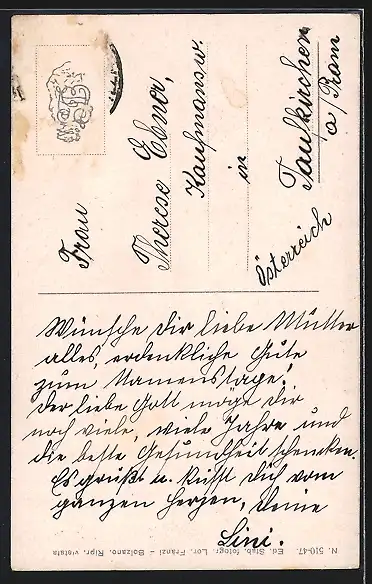 Frau
Therese Ebner,
Kaufmansw.
in
Taufkirchen
a/Pram
Österreich
Wünsche Dir liebe Mutter
alles, erdenkliche Gute
zum Namenstage!
Der liebe Gott möge Dir
noch viele, viele Jahre und
die beste Gesundheit schenken.
Es grüßt u. küsst Dich vom
ganzen Herzen, Deine
Lini.
N. 510-47. Ed. Stab. fotogr. Lor. Fränzl - Bolzano. Ripr. vietata